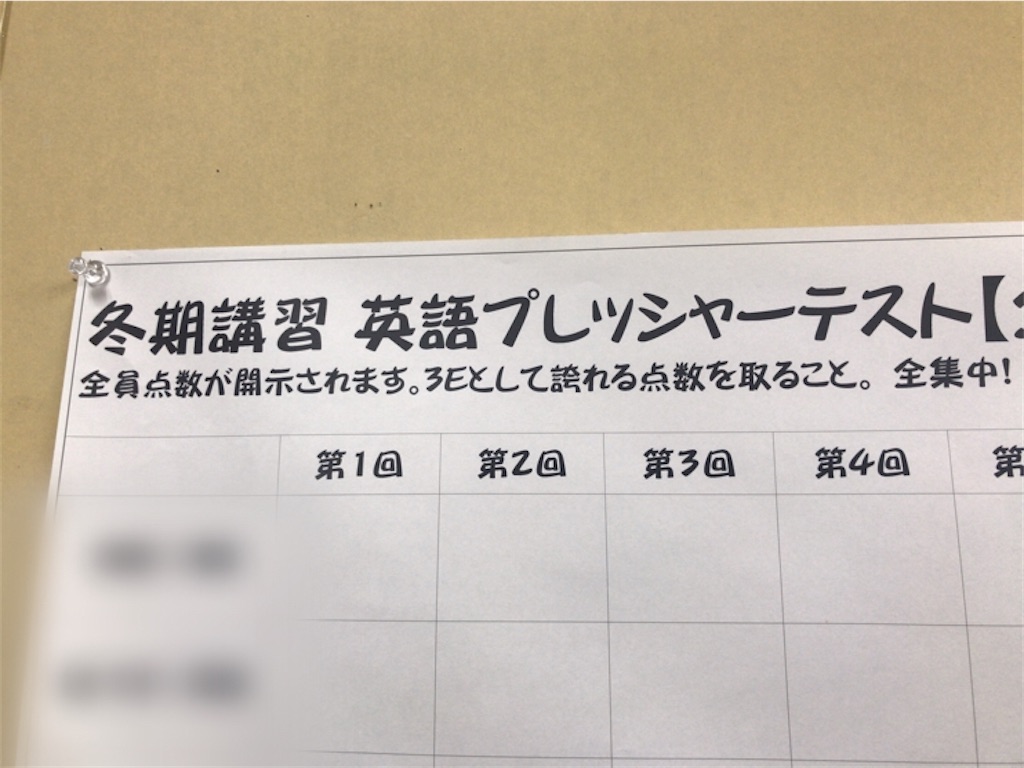 冬期講習 英語プレッシャーテスト【
全員点数が開示されます。3Eとして誇れる点数を取ること。 全集中!
第1回 第2回 第3回 第4回 第